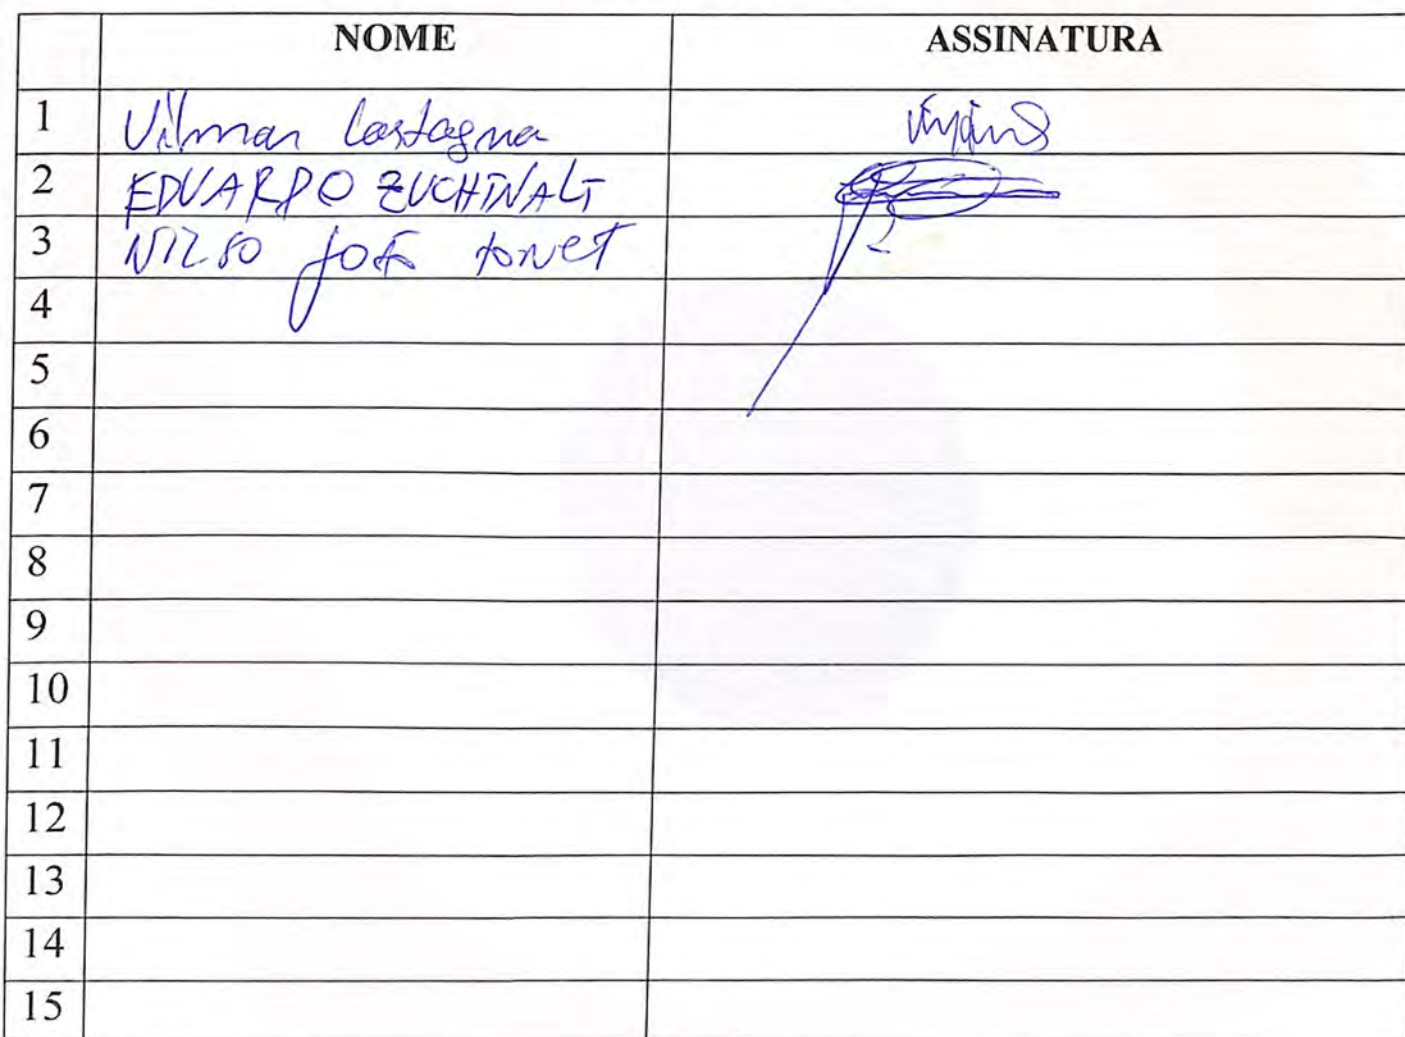 NOME ASSINATURA
1 Vilmar Castagna
2 EDUARDO ZUCHINALI
3 NILSO José tonet
4
5
6
7
8
9
10
11
12
13
14
15